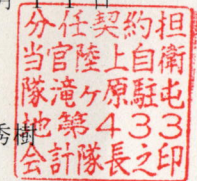 分任契約担
当官陸上自衛
隊滝ヶ原駐屯
地第433
会計隊長之印
秀樹